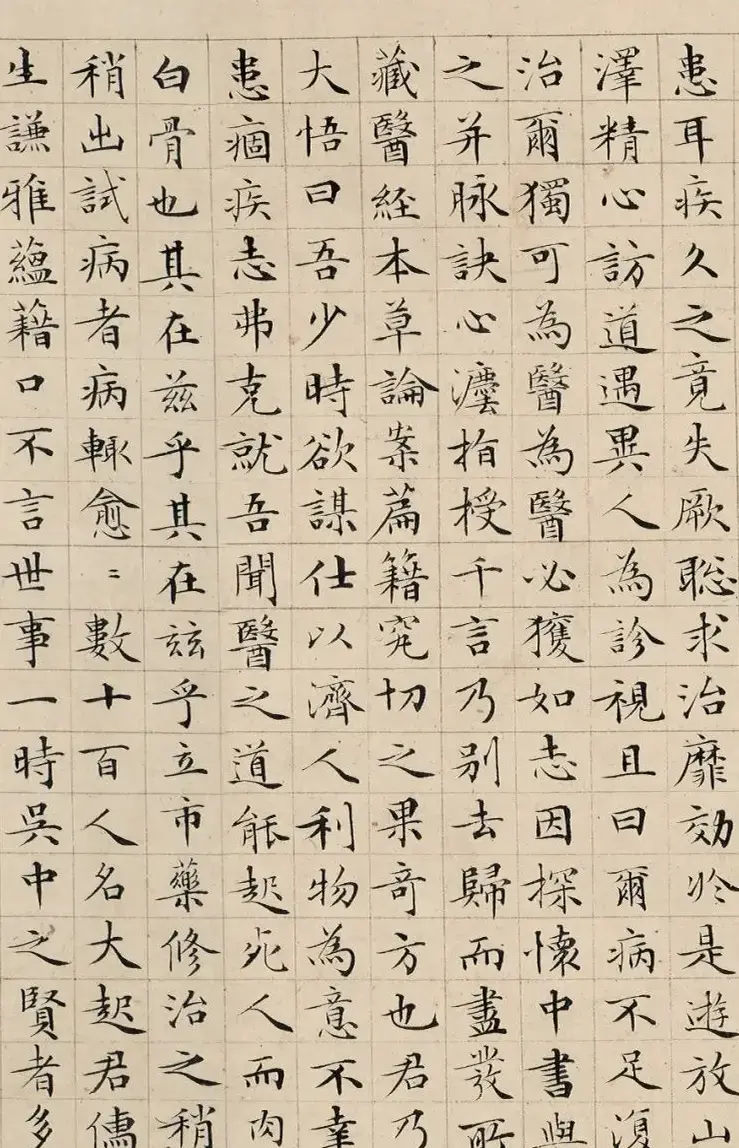 患耳疾久之竟失厥聦求治靡効於是遊放山
澤精心訪道遇異人為診視且曰爾病不足湏
治爾獨可為醫為醫必獲如志因探懷中書與
之并脉訣心灋指授千言乃别去歸而盡發所
藏醫経本草論案篇籍究切之果奇方也君乃
大悟曰吾少時欲謀仕以濟人利物為意不幸
患痼疾志弗克就吾聞醫之道能起死人而肉
白骨也其在兹乎其在兹乎立市藥修治之稍
稍出試病者病輙愈〻數十百人名大起君儁
生謙雅蘊藉口不言世事一時吳中之賢者多